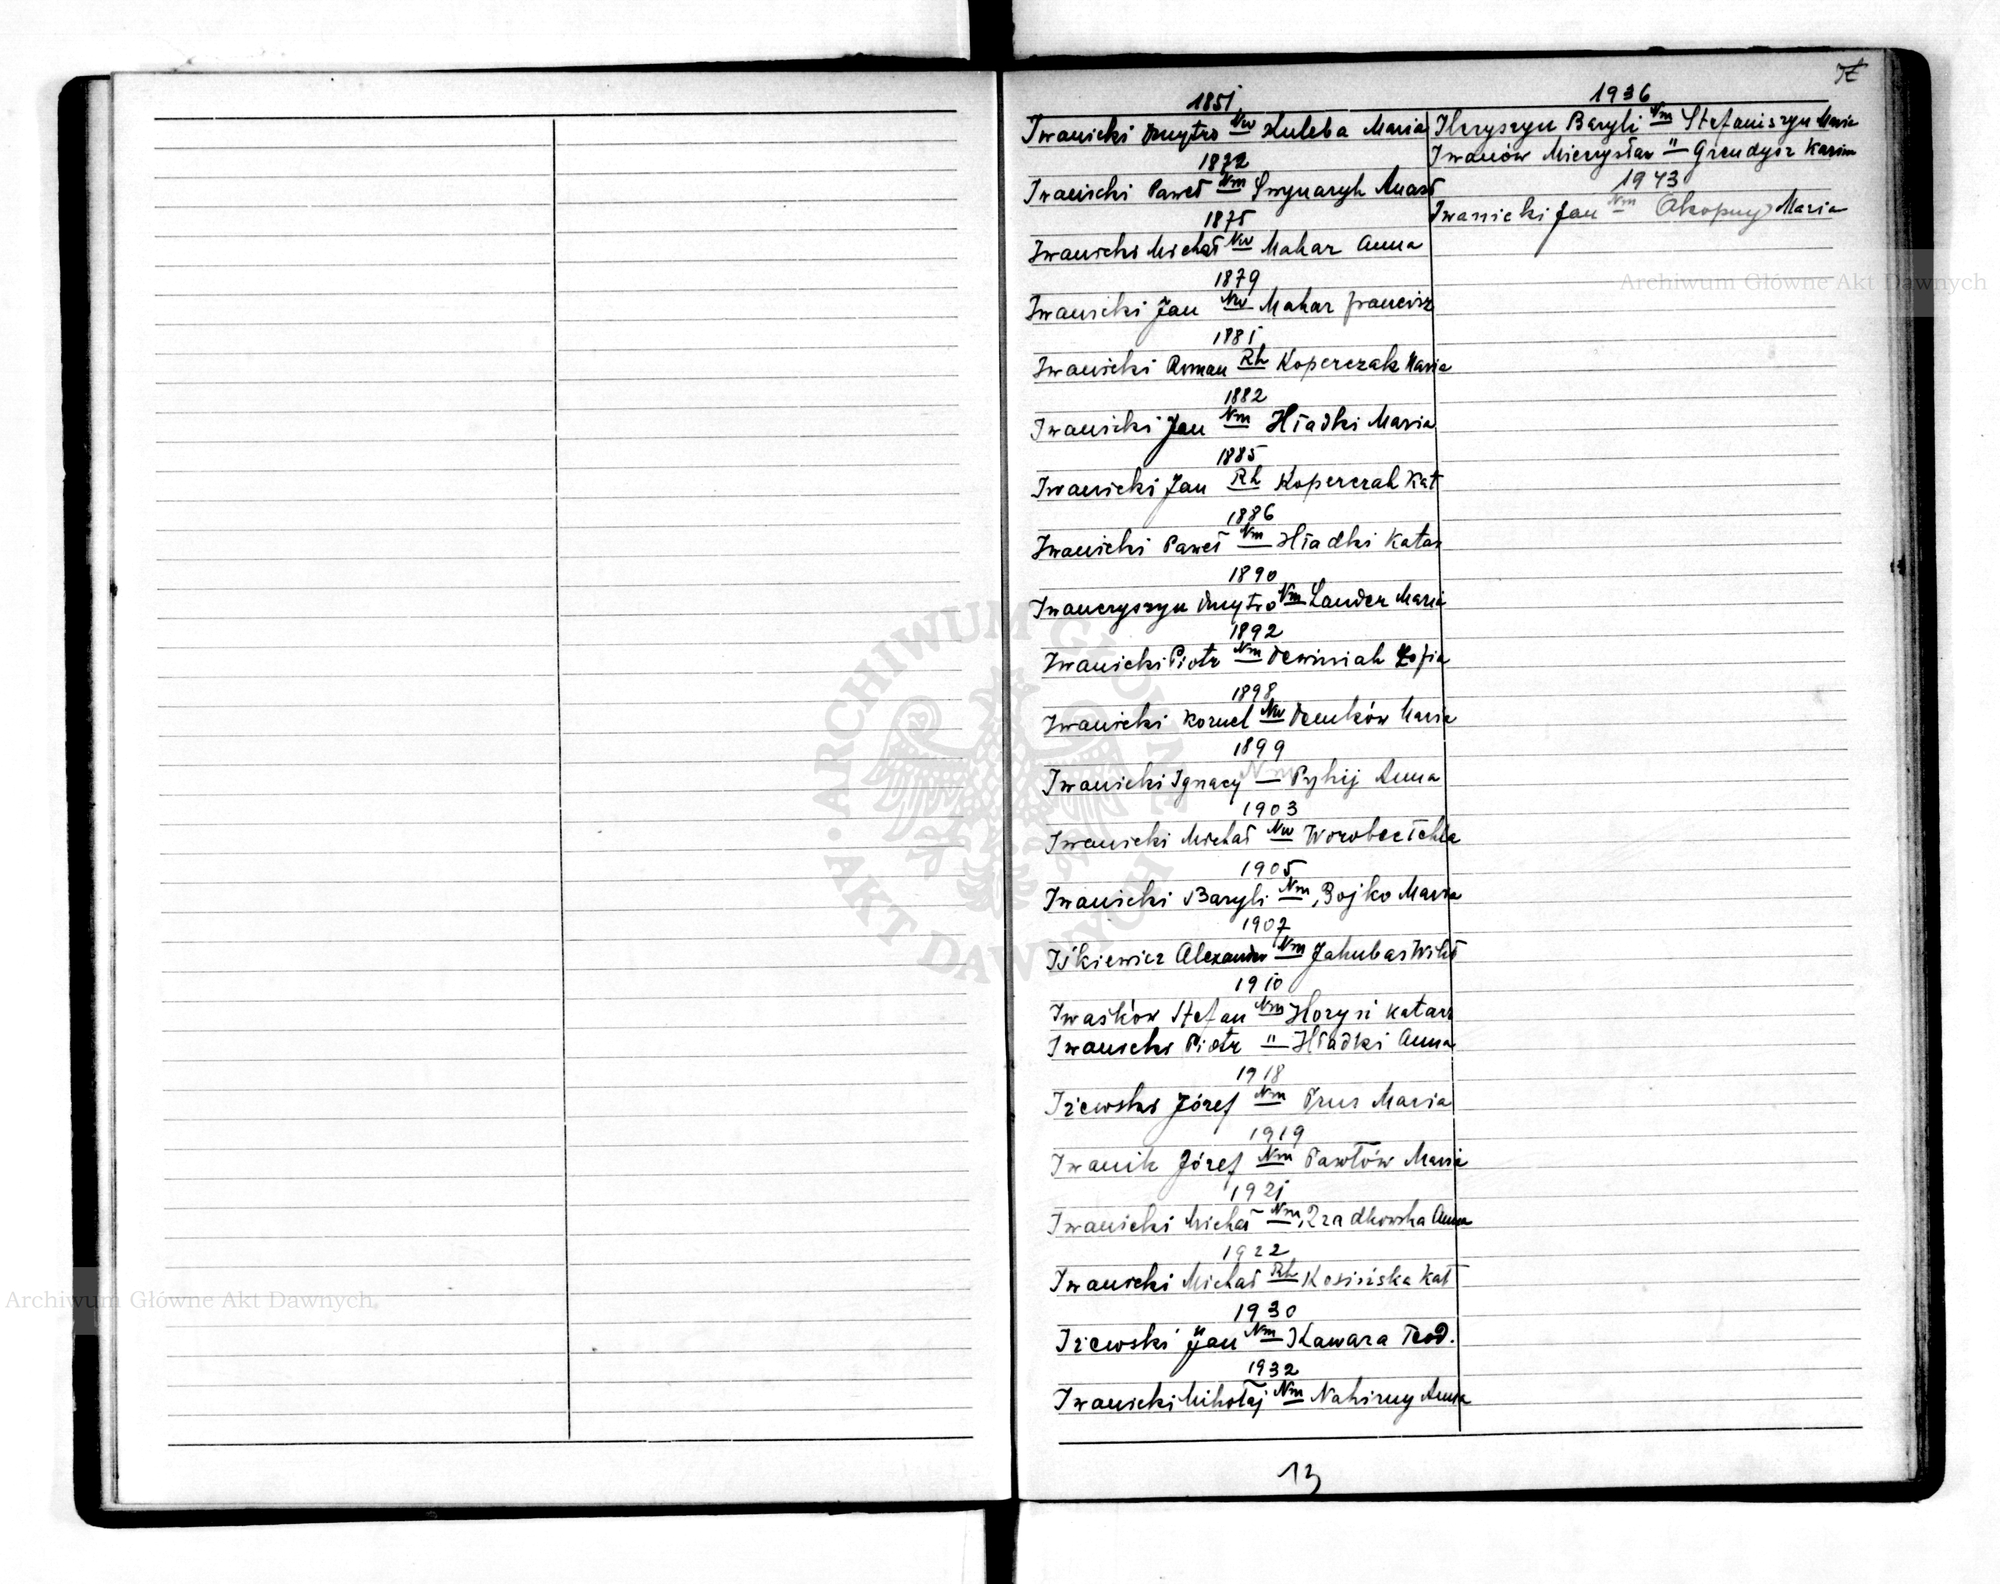 1851
Iwanicki Dmytro Nw Kuleba Maria
1872
Iwanicki Paweł Nm Smynaryk Anast
1875
Iwanicki Michał Nw Mahar Anna
1879
Iwanicki Jan Nw Mahar Francisz
1881
Iwanicki Roman Rh Koperczak Maria
1882
Iwanicki Jan Nm Hładki Maria
1885
Iwanicki Jan Rh Koperczak Kat
1886
Iwanicki Paweł Nm Hładki Katar
1890
Iwanczyszyn Dmytro Nm Lander Maria
1892
Iwanicki Piotr Nm Dewiniak Zofia
1898
Iwanicki Kornel Nw Demków Maria
1899
Iwanicki Ignacy Nm Pyhij Anna
1903
Iwanicki Michał Nw Worobec Tekla
1905
Iwanicki Bazyli Nm Bojko Maria
1907
Iśkiewicz Alexander Nm Jakubas Wikt
1910
Iwaśków Stefan Nm Horyń Katarz
Iwanicki Piotr " Hładki Anna
1918
Iżewski Józef Nm Prus Maria
1919
Iwanik Józef Nm Pawłów Maria
1921
Iwanicki Michał Nm Zradkowska Anna
1922
Iwanicki Michał Rh Kosińska Kat
1930
Iżewski Jan Nm Kawara Teod.
1932
Iwanicki Mikołaj Nm Nahirny Anna
1936
Ilczyszyn Bazyli Nm Stefaniszyn Maria
Iwanów Mieczysław " Grendysz Kazim
1943
Iwanicki Jan Nm Okopny Maria
13
ARCHIWUM GŁÓWNE
AKT DAWNYCH
Archiwum Główne Akt Dawnych
Archiwum Główne Akt Dawnych